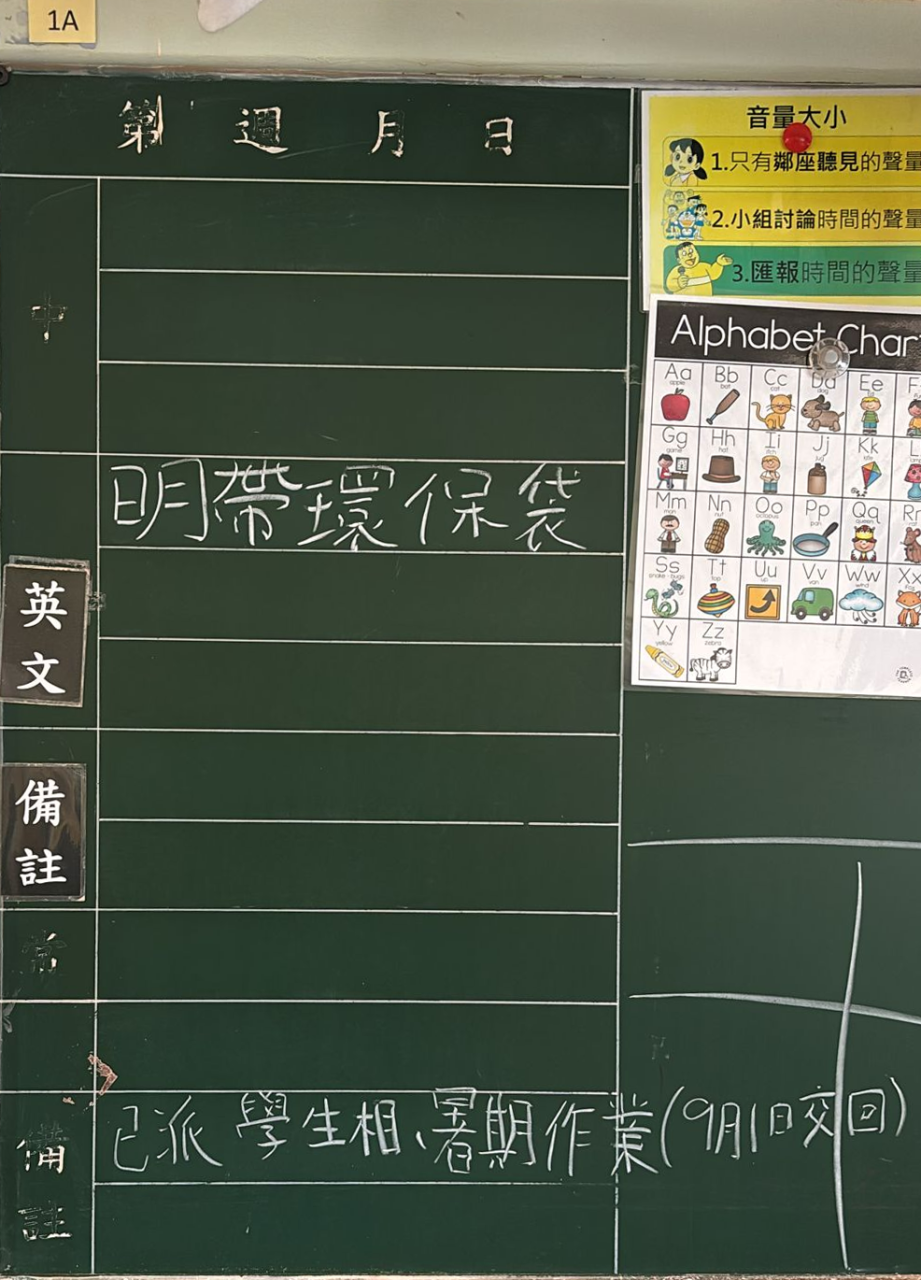 1A
第 週 月 日
音量大小
1.只有鄰座聽見的聲量
2.小組討論時間的聲量
3.匯報時間的聲量
中
Alphabet Chart
Aa apple Bb bat Cc cat Dd dog Ee
Gg game Hh hat Ii Jj jug Kk kite
Mm man Nn nut Oo octopus Pp pan Qq queen Rr
Ss Tt top Uu up Vv van Ww wind Xx fox
Yy yellow Zz zebra
明帶環保袋
英文
備註
常
備註
已派 學生相、暑期作業(9月1日交回)